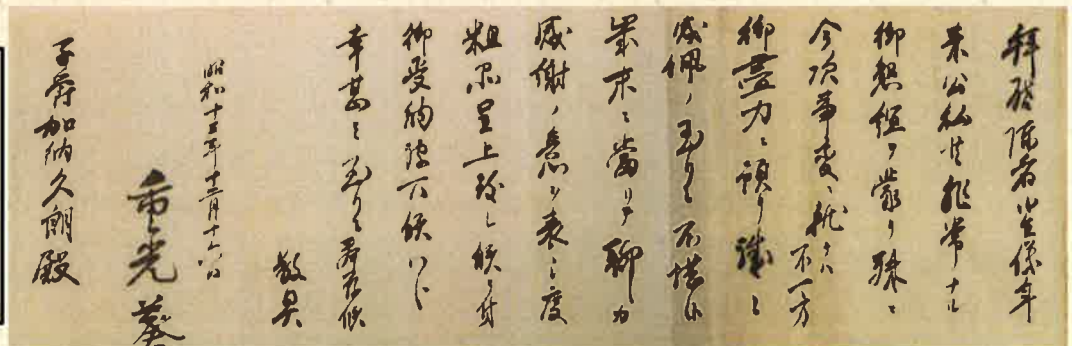 拝啓陳者小生儀年
来公私共非常ナル
御懇ヲ蒙リ殊ニ
今次事変ニ就テハ不一方
御盡力ニ預リ誠ニ
感佩ノ至リニ不堪候
歳末ニ當リ聊カ
感謝ノ意ヲ表シ度
粗品呈上致シ候
御受納被下候ハヽ
幸甚ニ至リニ御座候
敬具
昭和十三年十二月
重光葵
子爵加納久朗殿